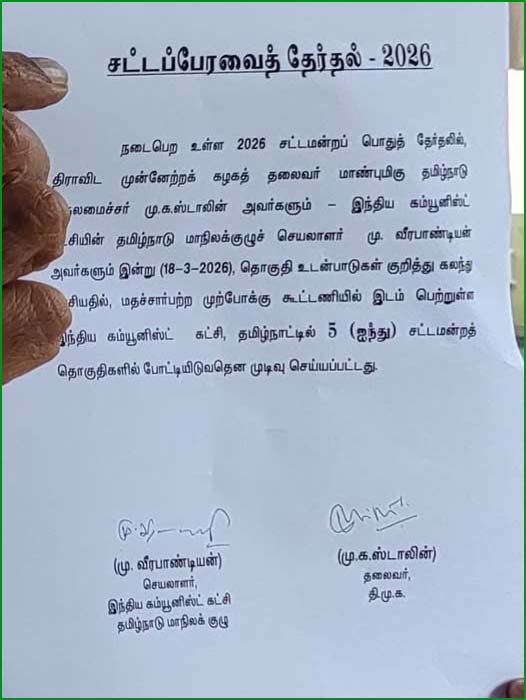 சட்டப்பேரவைத் தேர்தல் - 2026
நடைபெற உள்ள 2026 சட்டமன்றப் பொதுத் தேர்தலில்,
திராவிட முன்னேற்றக் கழகத் தலைவர் மாண்புமிகு தமிழ்நாடு
மு.க.ஸ்டாலின் அவர்களும் – இந்திய கம்யூனிஸ்ட்
தமிழ்நாடு மாநிலக்குழுச் செயலாளர் மு. வீரபாண்டியன்
அவர்களும் இன்று (18-3-2026), தொகுதி உடன்பாடுகள் குறித்து கலந்து
மதச்சார்பற்ற முற்போக்கு கூட்டணியில் இடம் பெற்றுள்ள
இந்திய கம்யூனிஸ்ட் கட்சி, தமிழ்நாட்டில் 5 (ஐந்து) சட்டமன்றத்
தொகுதிகளில் போட்டியிடுவதென முடிவு செய்யப்பட்டது.
(மு. வீரபாண்டியன்)
செயலாளர்,
இந்திய கம்யூனிஸ்ட் கட்சி
தமிழ்நாடு மாநிலக் குழு
(மு.க.ஸ்டாலின்)
தலைவர்,
தி.மு.க.